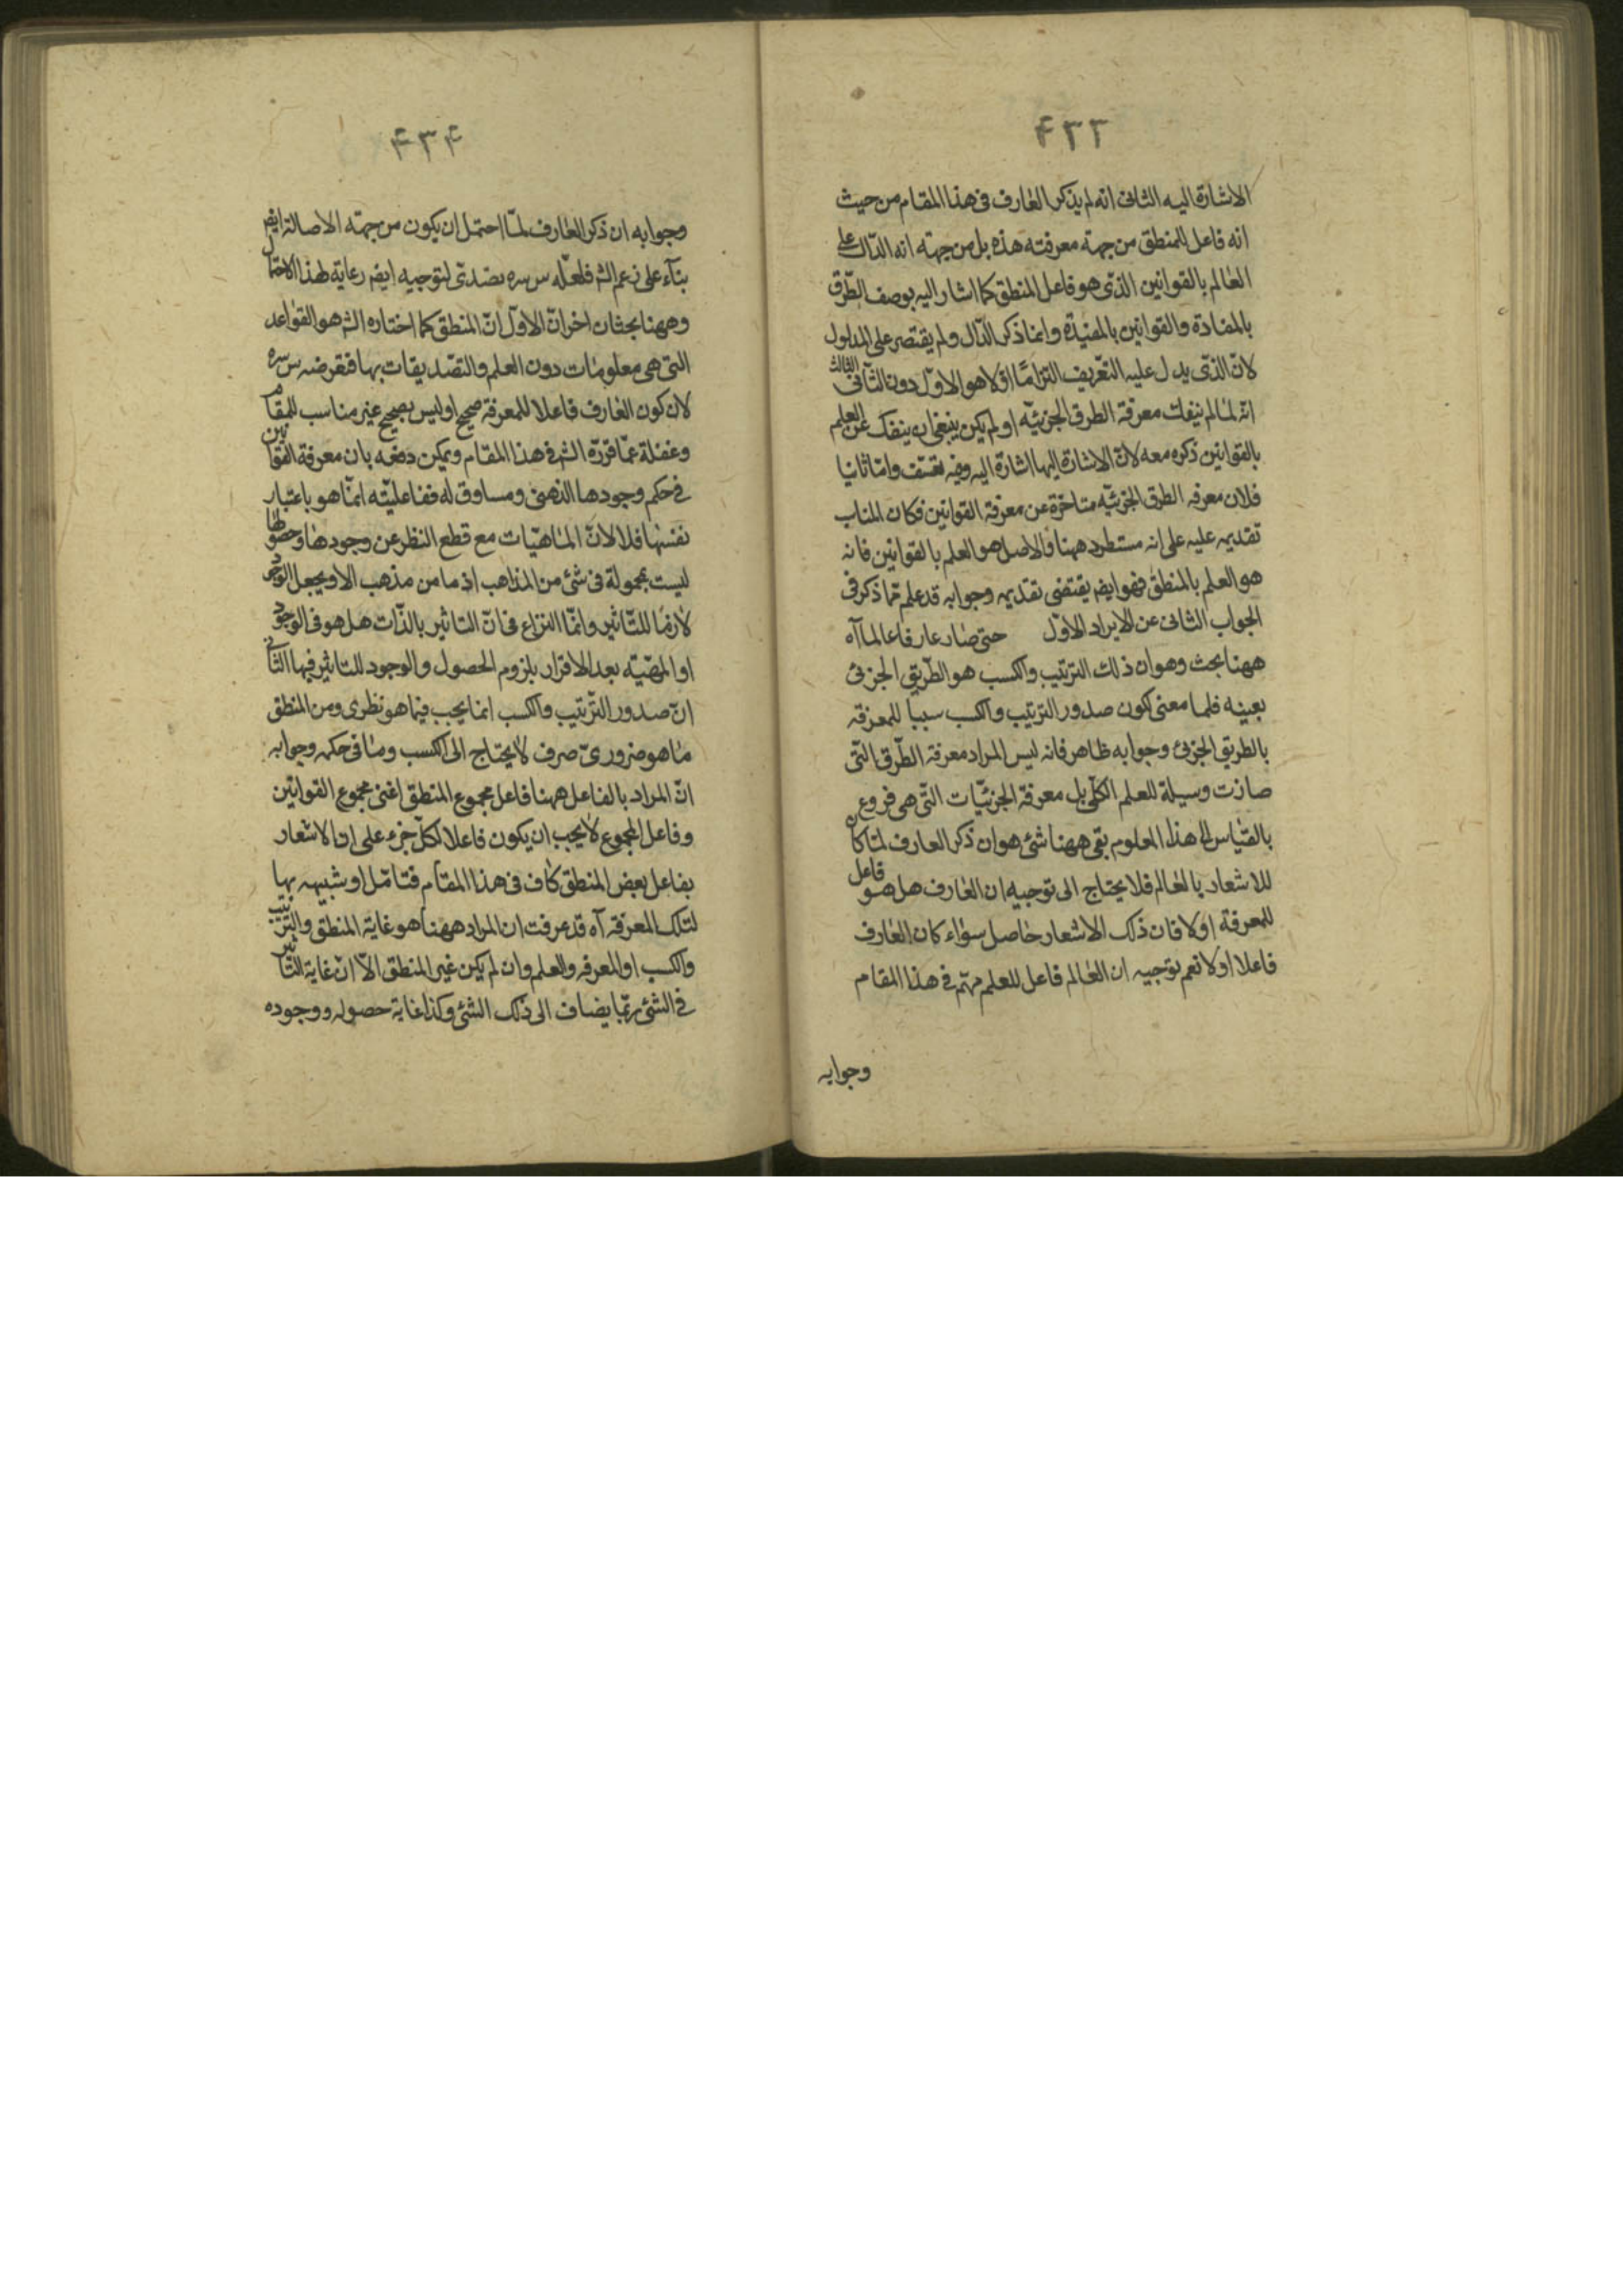 ۴۳۳
الاشارة اليه الثانى انه لم يذكر العارف فى هذا المقام من حيث
انه فاعل للمنطق من جهة معرفته هذه بل من جهة انه الدّال على
العالم بالقوانين الذى هو فاعل المنطق كما اشار اليه بوصف الطّرق
بالمفادة والقوانين بالمفيدة وانما ذكر الدّال ولم يقتصر على المدلول
لانّ الذى يدل عليه التعريف التزاما اوّلا هو الاوّل دون الثانى الثالث
انّه لما لم ينفك معرفة الطرق الجزئيّه او لم يكن ينبغى ان ينفك عن العلم
بالقوانين ذكره معه لانّ الاشارة اليها اشارة اليه وفيه تعسّف وامّا ثانيا
فلان معرفه الطرق الجزئيّه متاخرة عن معرفة القوانين فكان المناسب
تقديمه عليه على انه مستطرد ههنا والاصل هو العلم بالقوانين فانه
هو العلم بالمنطق فهو ايضا يقتضى تقديمه وجوابه قد علم ممّا ذكر فى
الجواب الثانى عن الايراد الاوّل حتى صار عارفا عالما آه
ههنا بحث وهو ان ذلك الترتيب والكسب هو الطّريق الجزئى
بعينه فلما معنى كون صدور الترتيب والكسب سببا للمعرفه
بالطريق الجزئى وجوابه ظاهر فانه ليس المراد معرفة الطّرق التّى
صارت وسيلة للعلم الكلّى بل معرفة الجزئيّات التّى هى فروع
بالقياس الى هذا المعلوم بقى ههنا شئ هو ان ذكر العارف لمّا كان
للاشعار بالعالم فلا يحتاج الى توجيه ان العارف هل هو فاعل
للمعرفة او لا فان ذلك الاشعار حاصل سواء كان العارف
فاعلا او لا نعم توجيه ان العالم فاعل للعلم مهمّ فى هذا المقام
وجوابه
۴۳۴
وجوابه ان ذكر العارف لمّا احتمل ان يكون من جهة الاصالة ايضا
بنآء على زعم الش فلعلّه س سره تصدى لتوجيه ايضا رعاية لهذا الاحتمال
وههنا بحثان اخران الاوّل انّ المنطق كما اختاره الش هو القواعد
التى هى معلومات دون العلم والتصّديقات بها فتعرضه س سره
لان كون العارف فاعلا للمعرفة صحيح او ليس بصحيح غير مناسب للمقام
وغفلة عمّا قرّره الش فى هذا المقام ويمكن دفعه بان معرفة القوانين
فى حكم وجودها الذهنى ومساوق له ففاعليّته انمّا هو باعتبار
نفسها فلا لانّ الماهيّات مع قطع النظر عن وجودها وحصولها
ليست مجعولة فى شئ من المذاهب اذ ما من مذهب الا ويجعل الوجود
لازما للتّاثير وانمّا النزاع فى انّ التاثير بالذّات هل هو فى الوجود
او المهيّته بعد الاقرار بلزوم الحصول والوجود للتاثير فيها الثانى
انّ صدور الترّتيب والكسب انما يجب فيما هو نظرى ومن المنطق
ما هو ضرورىّ صرف لا يحتاج الى الكسب وما فى حكمه وجوابه
انّ المراد بالفاعل ههنا فاعل مجموع المنطق اعنى مجموع القوانين
وفاعل المجموع لا يجب ان يكون فاعلا لكلّ جزء على ان الاشعار
بفاعل بعض المنطق كاف فى هذا المقام فتامّل او شبيهه بها
لتلك المعرفه آه قد عرفت ان المراد ههنا هو غاية المنطق والترتيب
والكسب او المعرفه والعلم وان لم يكن غير المنطق الاّ انّ غاية التاثير
فى الشئ ربّما يضاف الى ذلك الشئ وكذا غاية حصوله ووجوده